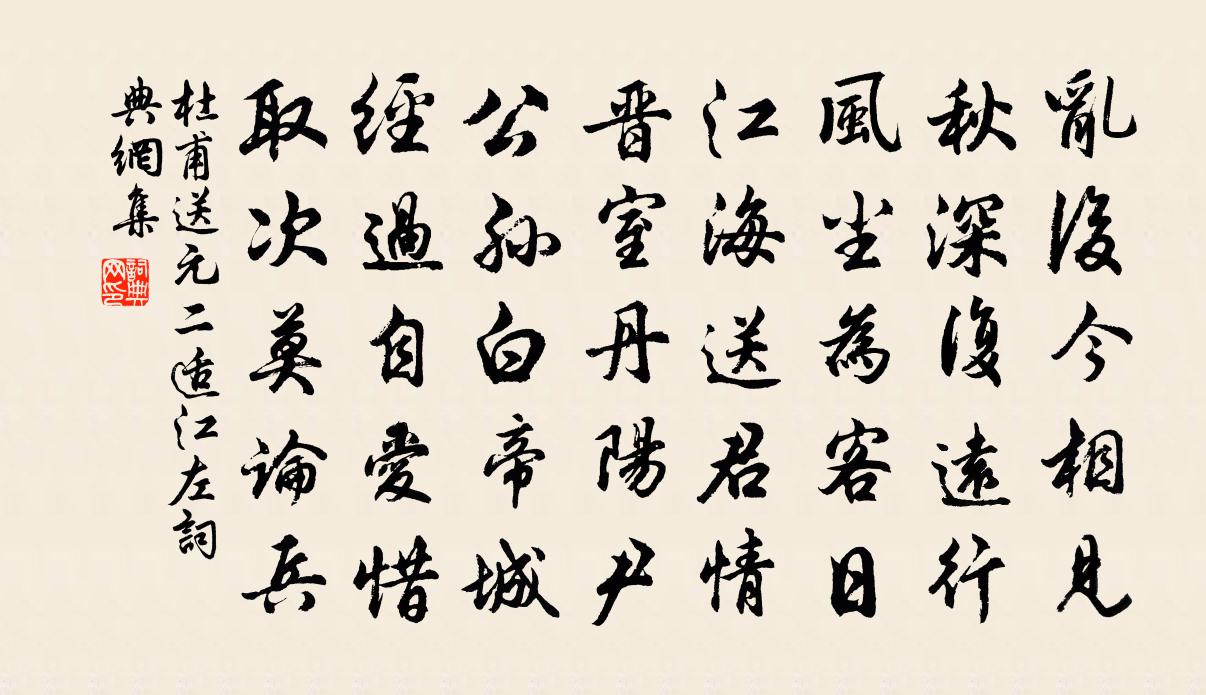 亂後今相見
秋深復遠行
風尘為客日
江海送君情
晋室丹陽尹
公孫白帝城
經過自愛惜
取次莫論兵
杜甫送元二适江左詞
典網集
詞典
网印